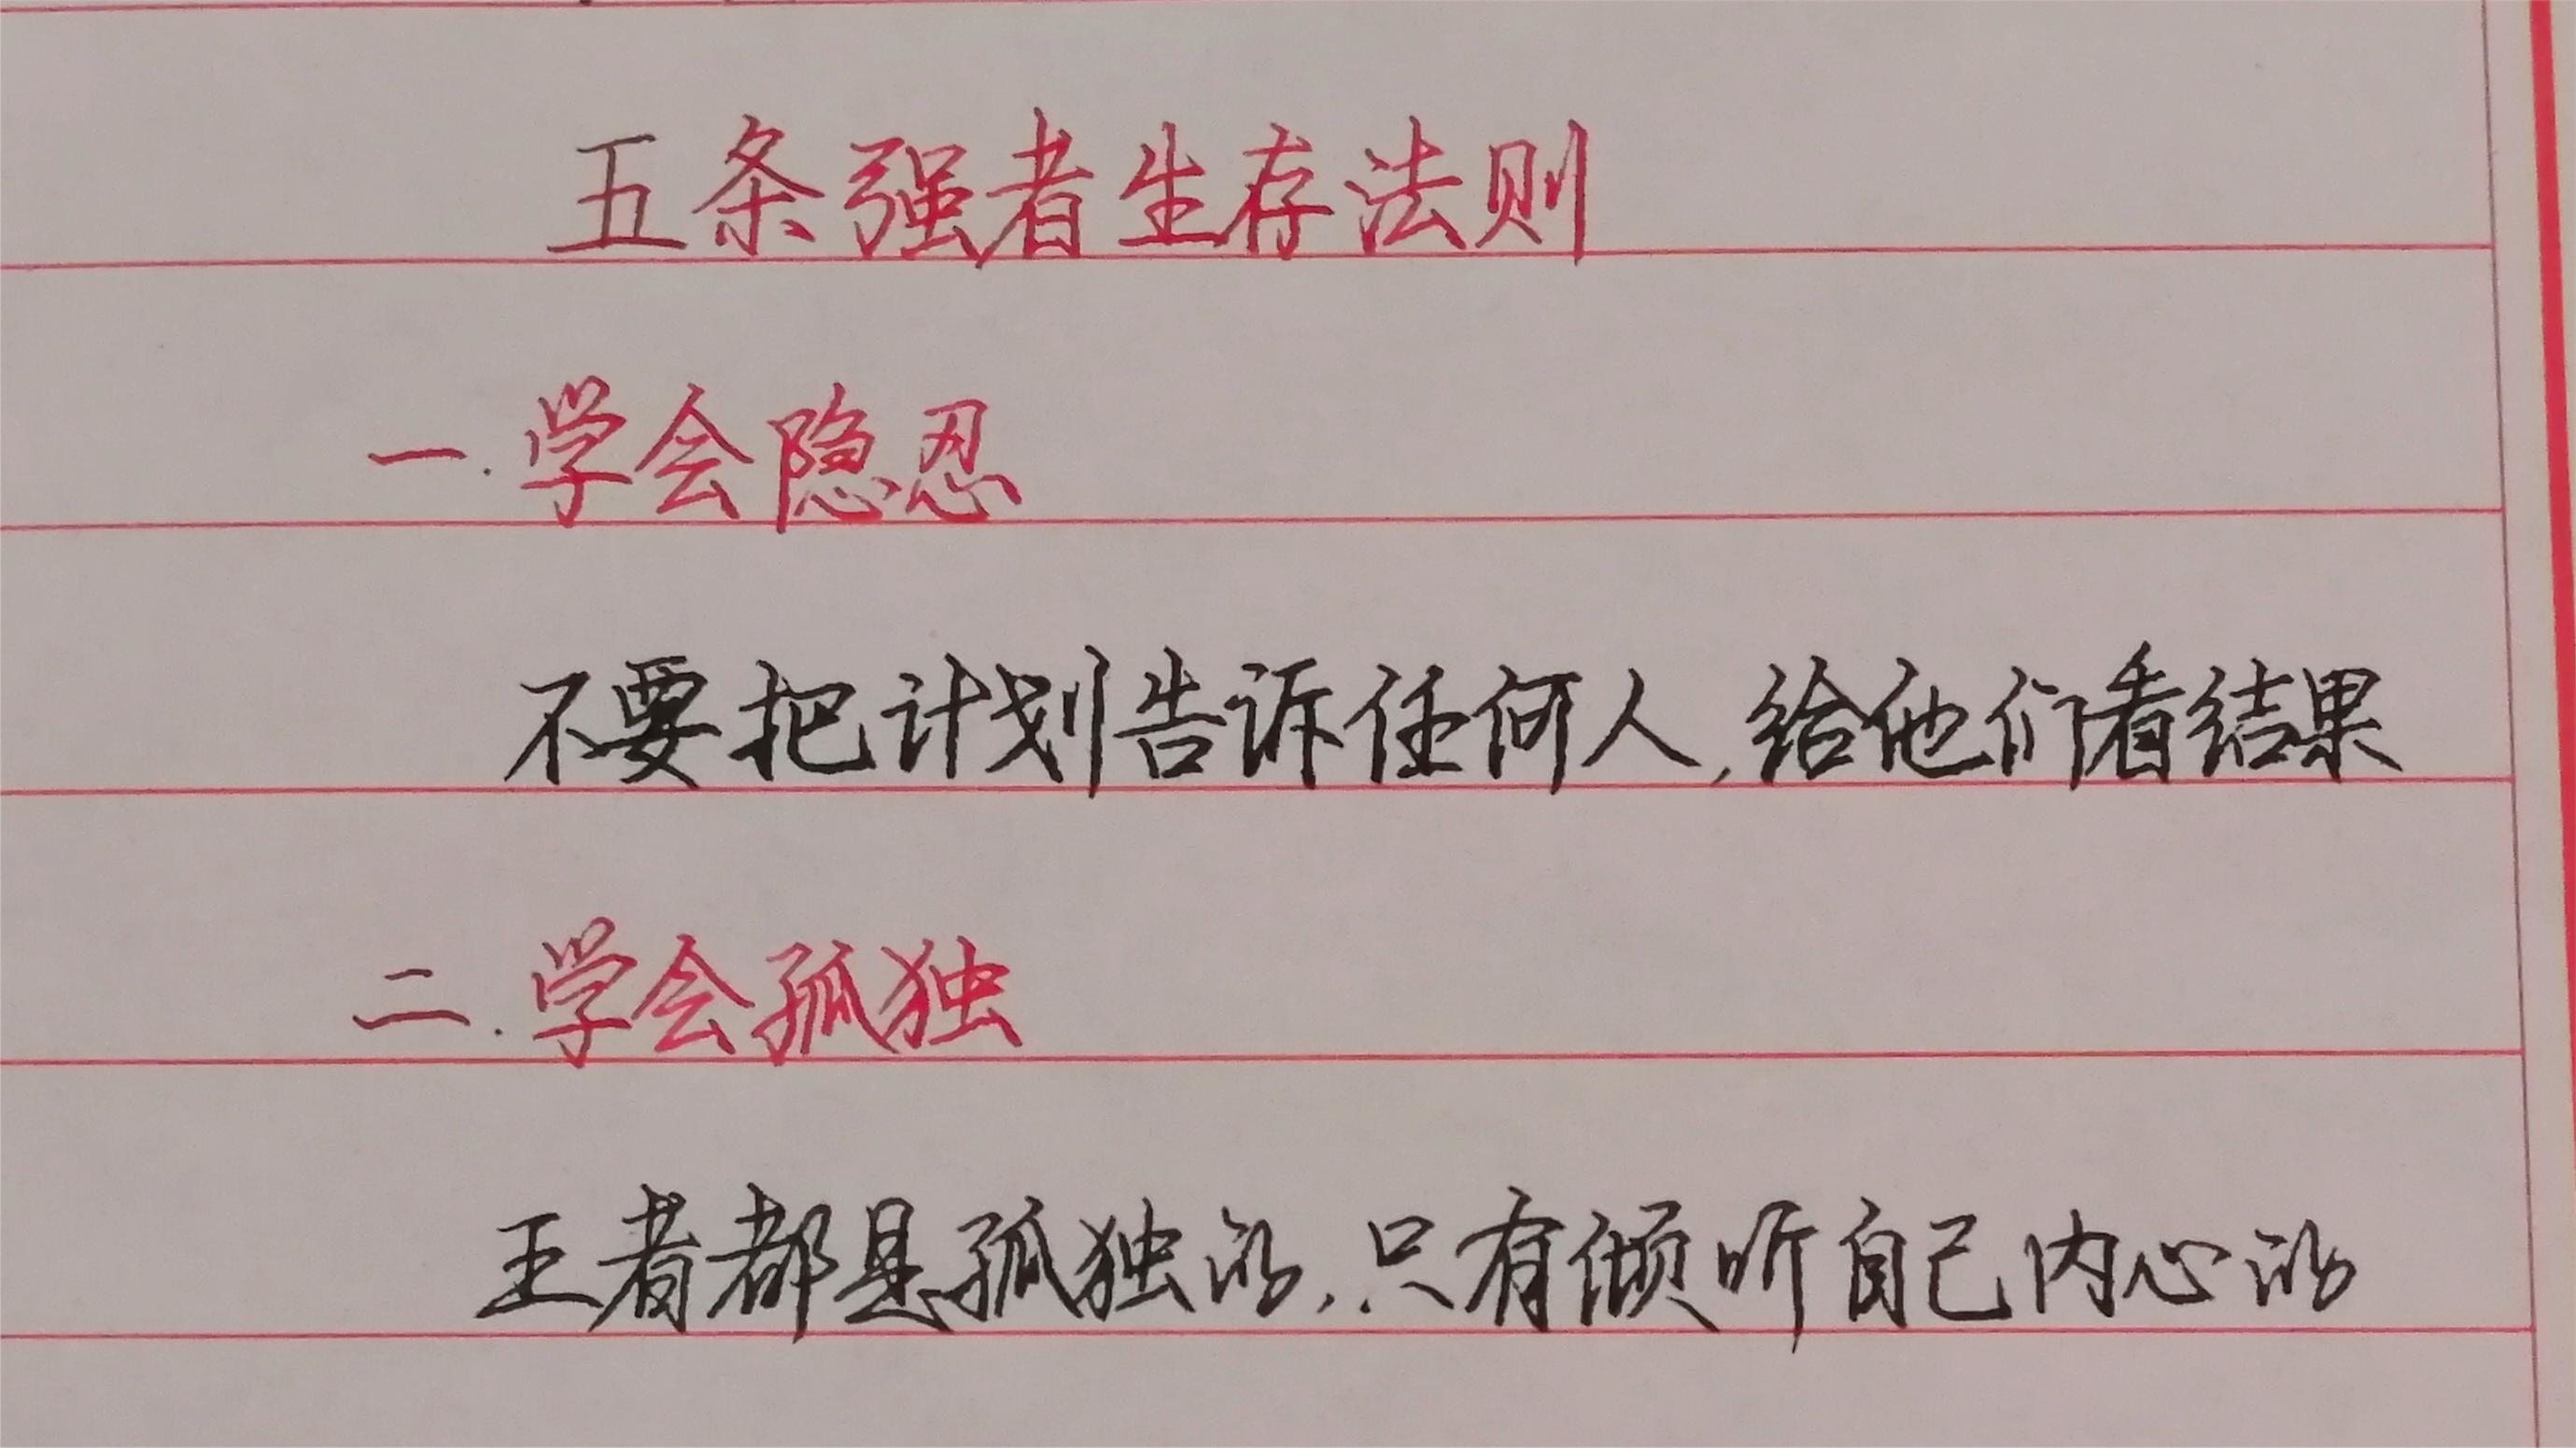 五条强者生存法则
一.学会隐忍
不要把计划告诉任何人,给他们看结果
二.学会孤独
王者都是孤独的,只有倾听自己内心的